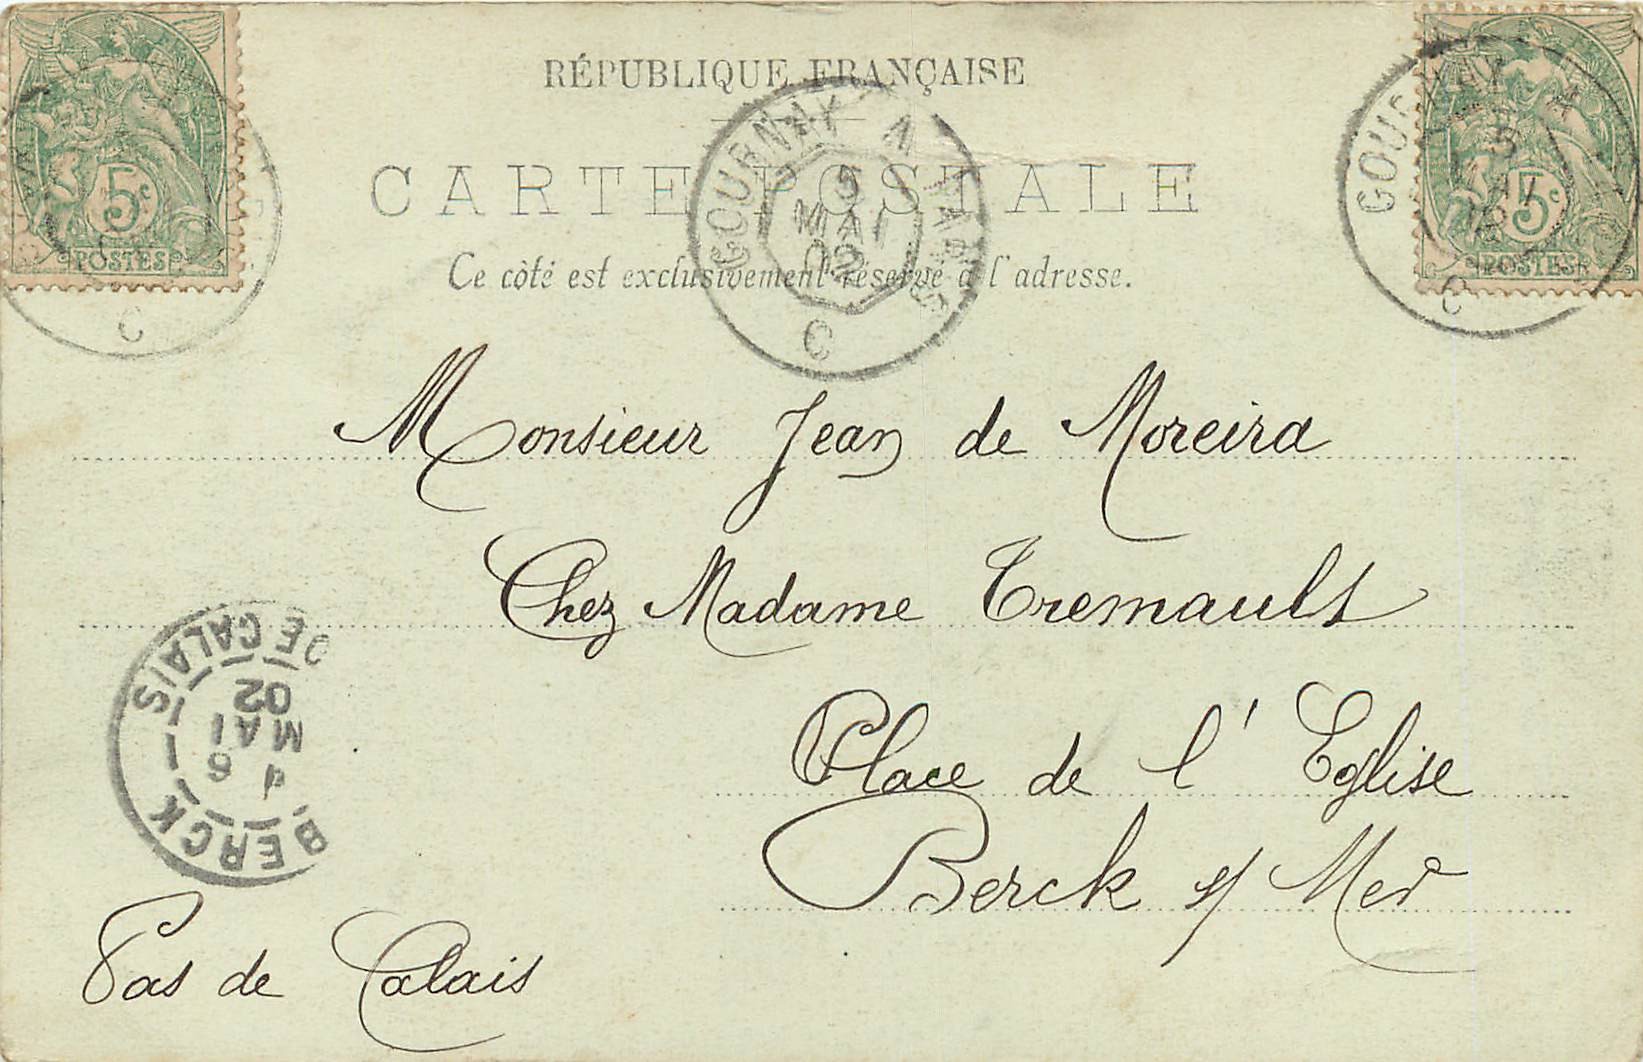 RÉPUBLIQUE FRANÇAISE
CARTE POSTALE
Ce côté est exclusivement réservé à l'adresse.
5c
POSTES
5c
POSTES
GOURNAY A PARIS
5
MAI
02
C
GOURNAY A
5
MAI
C
C
Monsieur Jean de Moreira
Chez Madame Tremault
Place de l'Eglise
Berck s/ Mer
Pas de Calais
BERCK
DE CALAIS
6
MAI
02